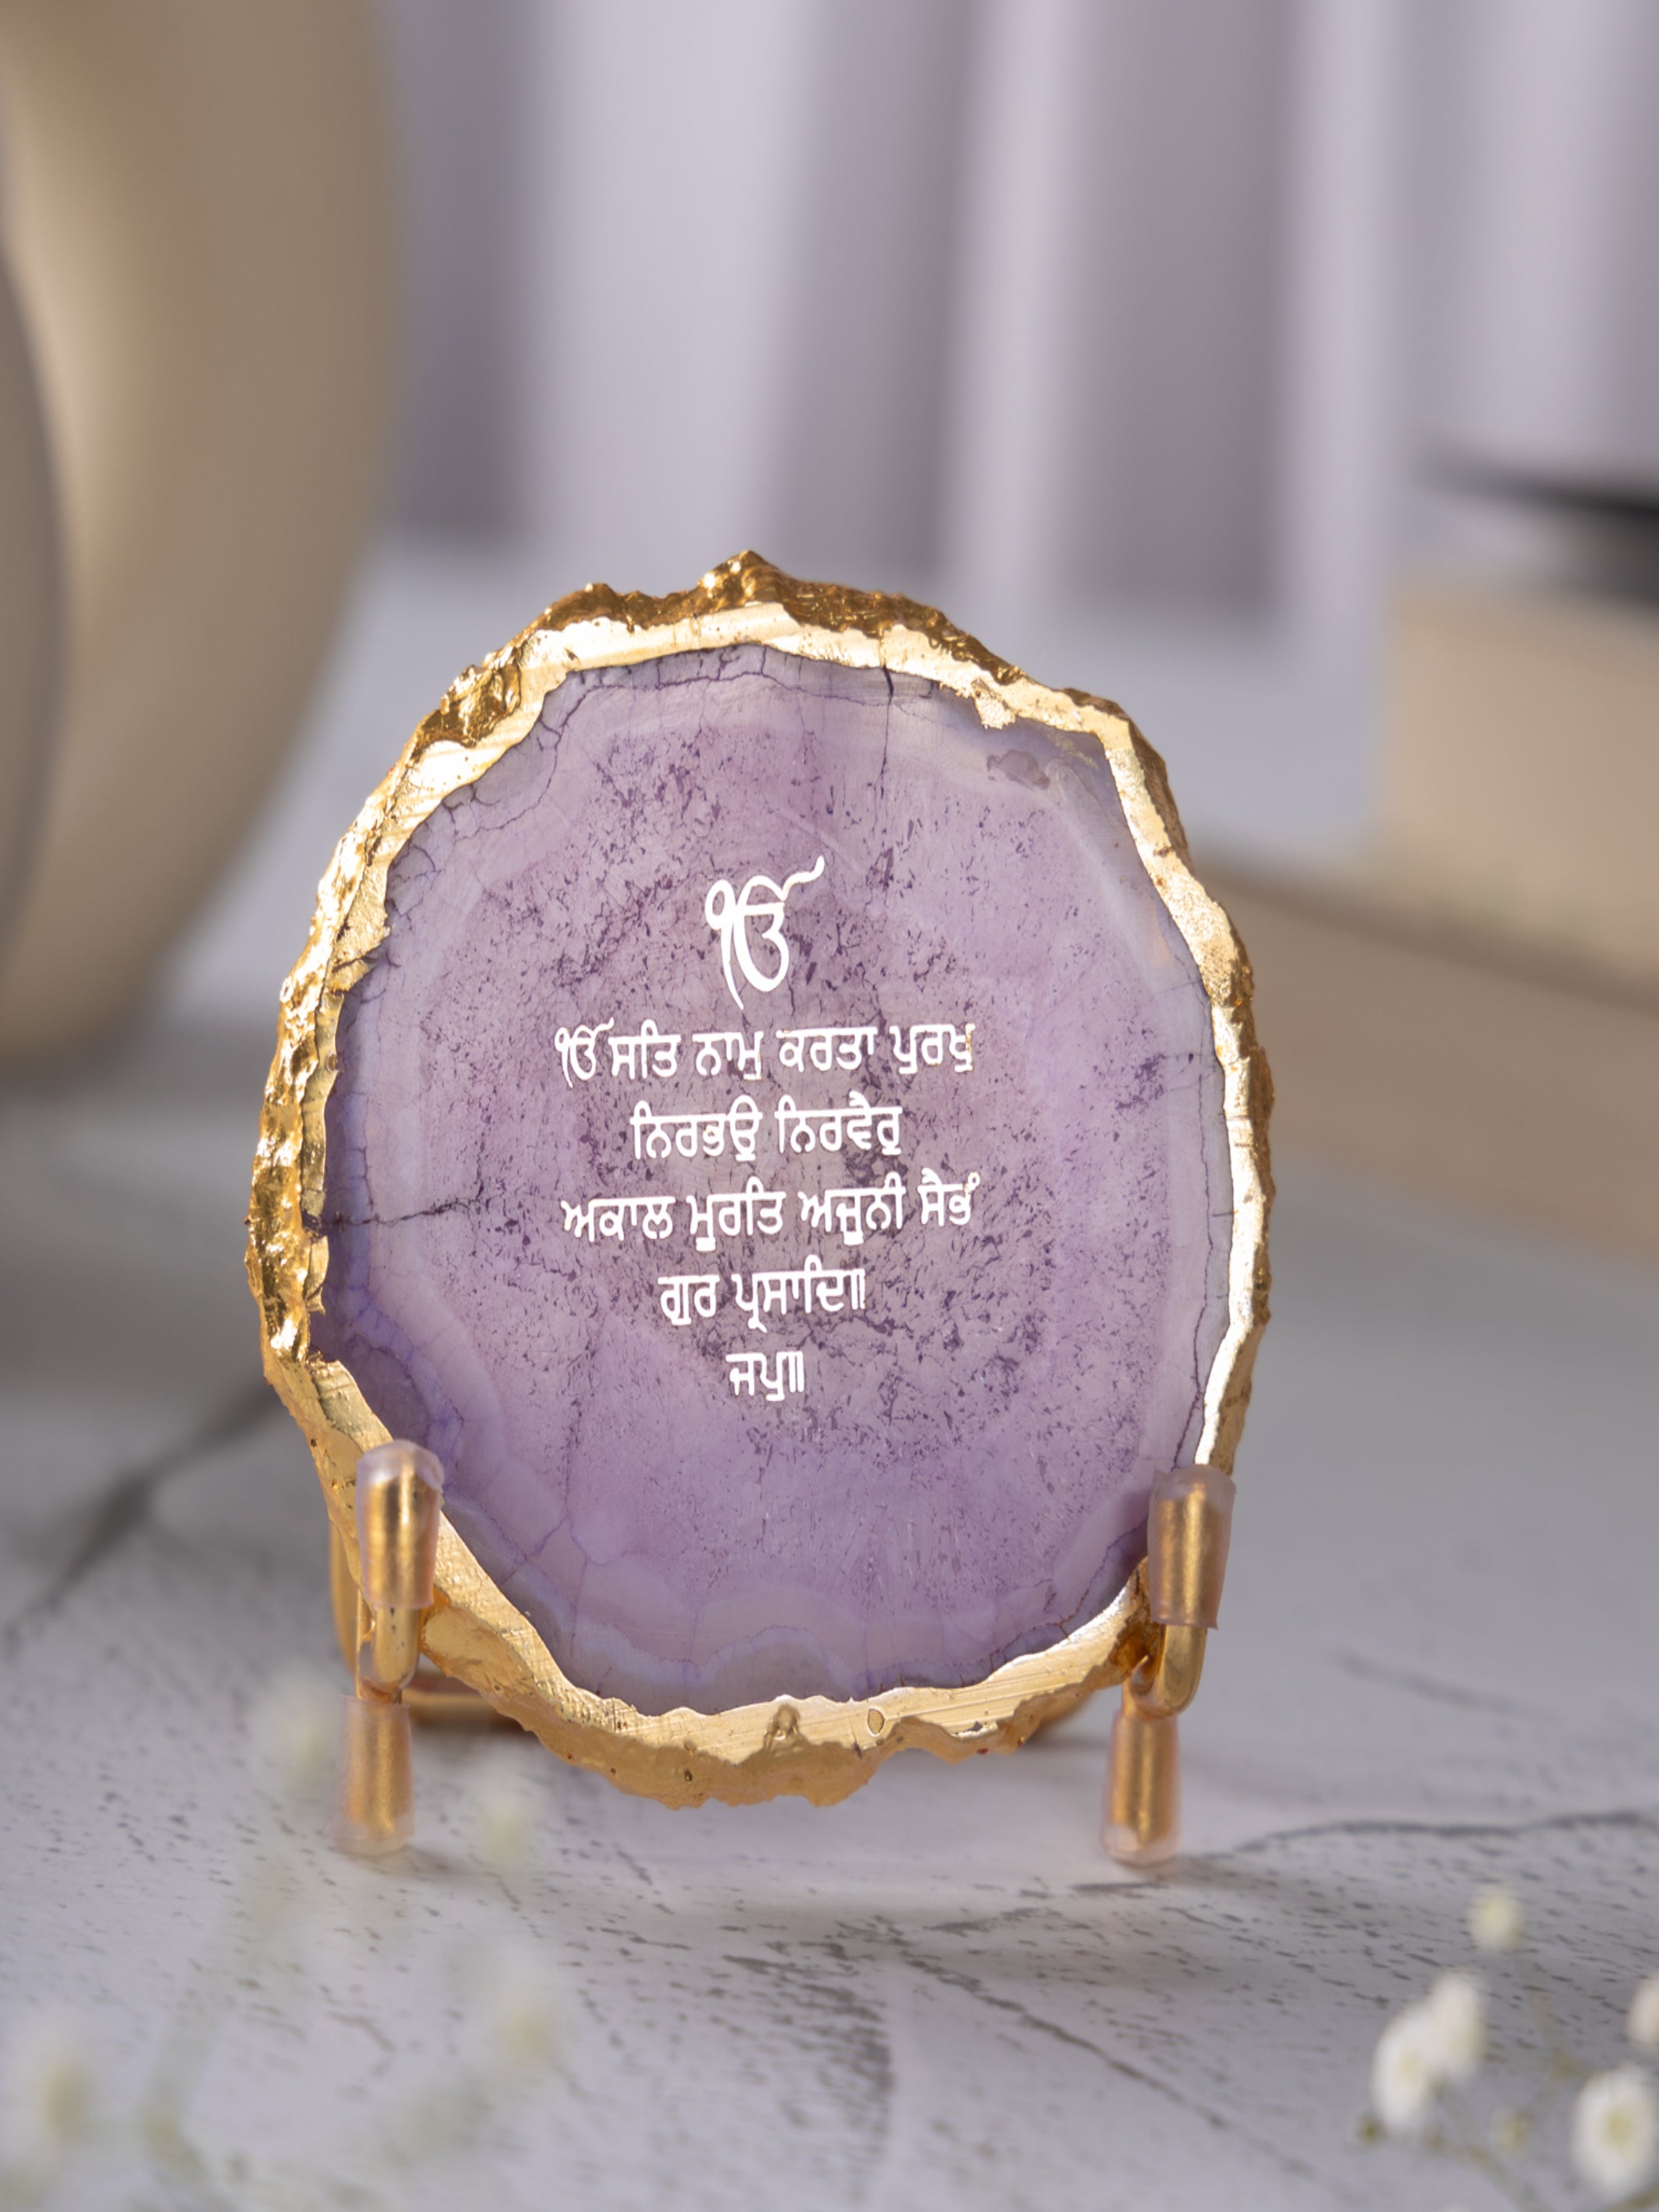 ੴ
ੴ ਸਤਿ ਨਾਮੁ ਕਰਤਾ ਪੁਰਖੁ
ਨਿਰਭਉ ਨਿਰਵੈਰੁ
ਅਕਾਲ ਮੂਰਤਿ ਅਜੂਨੀ ਸੈਭੰ
ਗੁਰ ਪ੍ਰਸਾਦਿ॥
ਜਪੁ॥